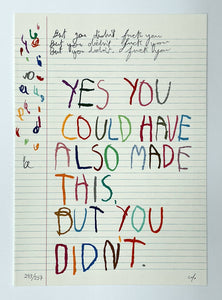 But you didn't fuck you
But you didn't. fuck you
But you didn't. fuck you
YES YOU
COULD HAVE
ALSO MADE
THIS,
BUT YOU
DIDN'T.